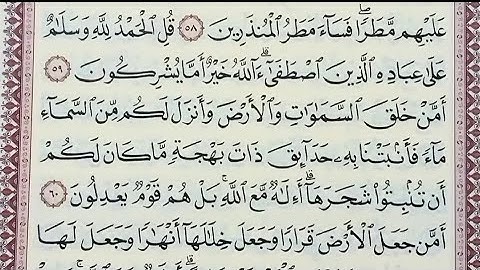 عَلَيْهِم مَّطَرًا ۖ فَسَآءَ مَطَرُ ٱلْمُنذَرِينَ ٥٨ قُلِ ٱلْحَمْدُ لِلَّهِ وَسَلَٰمٌ
عَلَىٰ عِبَادِهِ ٱلَّذِينَ ٱصْطَفَىٰٓ ۗ ءَآللَّهُ خَيْرٌ أَمَّا يُشْرِكُونَ ٥٩
أَمَّنْ خَلَقَ ٱلسَّمَٰوَٰتِ وَٱلْأَرْضَ وَأَنزَلَ لَكُم مِّنَ ٱلسَّمَآءِ
مَآءً فَأَنۢبَتْنَا بِهِۦ حَدَآئِقَ ذَاتَ بَهْجَةٍ مَّا كَانَ لَكُمْ
أَن تُنۢبِتُوا۟ شَجَرَهَآ ۗ أَءِلَٰهٌ مَّعَ ٱللَّهِ ۚ بَلْ هُمْ قَوْمٌ يَعْدِلُونَ ٦٠
أَمَّن جَعَلَ ٱلْأَرْضَ قَرَارًا وَجَعَلَ خِلَٰلَهَآ أَنْهَٰرًا وَجَعَلَ لَهَا